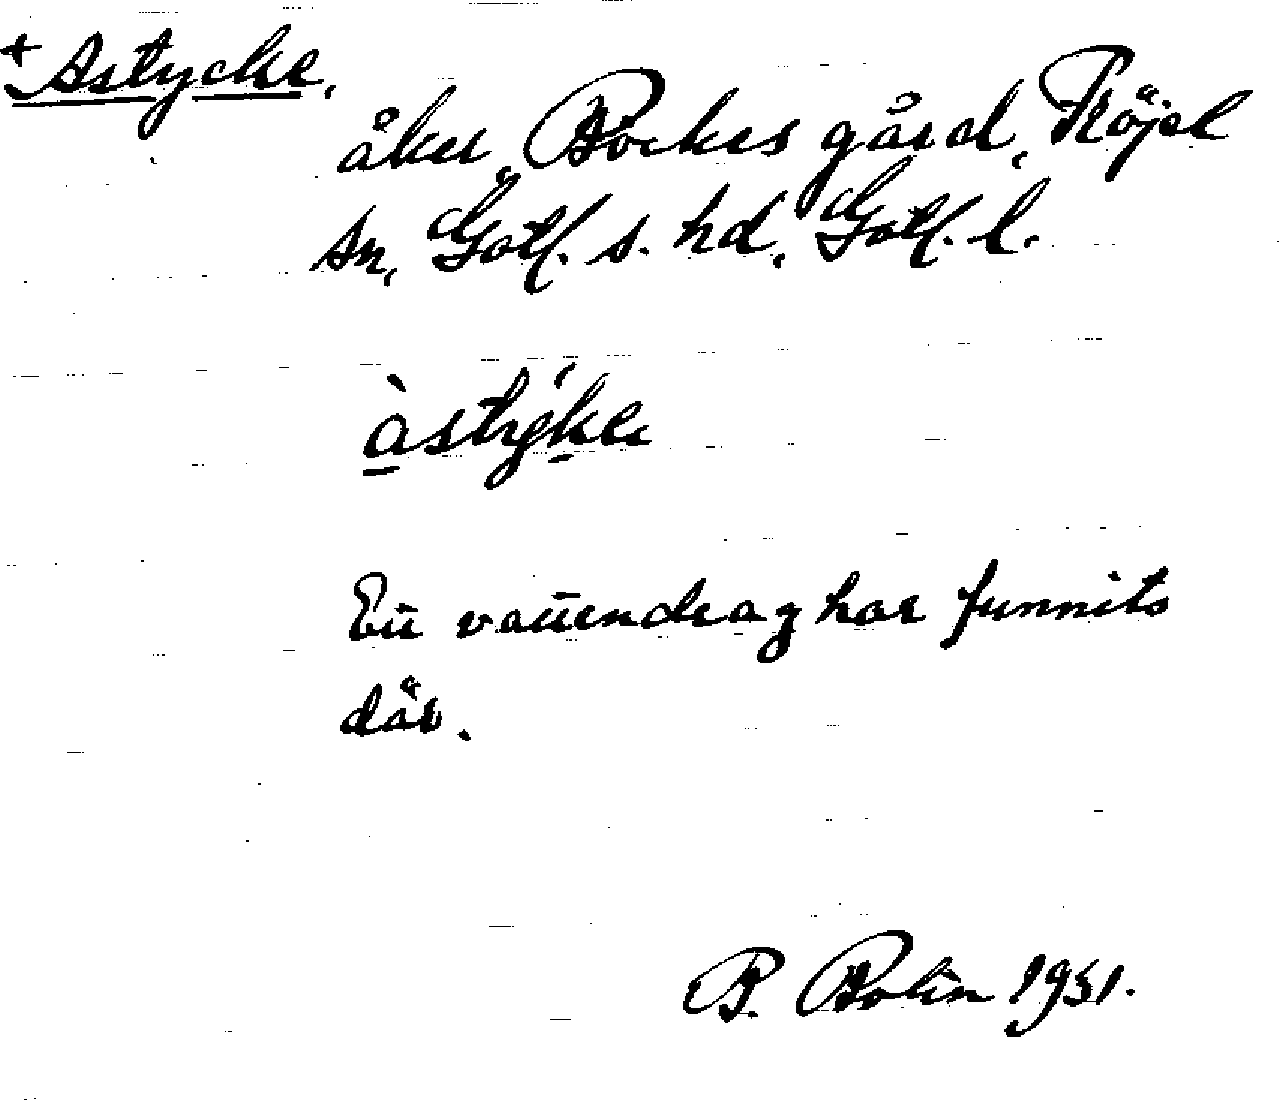 + Astycke,
åker, Bockes gård, Fröjel
sn, Gotl. s. hd, Gotl. l.
àstýke
Ett vattendrag har funnits
där.
B. Bolin 1931.